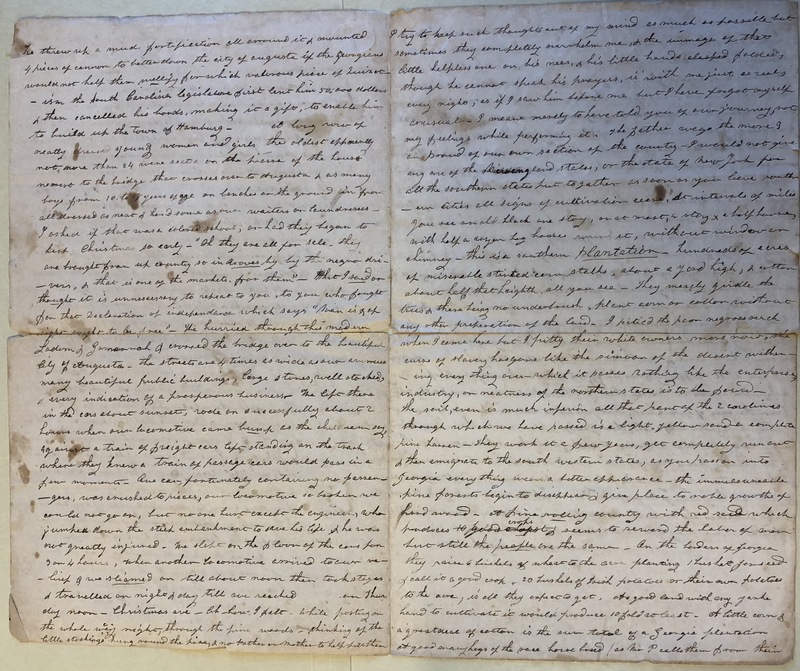 He threw up a mud fortification all around it & mounted
4 pieces of cannon to batter down the city of augusta if the Georgians
would not help them nullify for which valorous piece of heroist
- ism the South Carolina legislature first lent him 50,000 dollars
& then cancelled his bonds, making it a gift, to enable him
to build up the town of Hamburg - a long row of
neatly dressed young women and girls, the oldest apparently
not more than 24 were seated on the piazza of the house
nearest to the bridge that crosses over to augusta & as many
boys from 10 to years of age on benches on the ground in front
all dressed as neat & handsome as our waiters or laundresses -
I asked if that was a colored school, or had they began to
keep Christmas so early - "Oh they are all for sale - they
are brought from up country so in droves by the negro dri
- vers, & that is one of the markets for them" - What I said or
thought it is unnecessary to repeat to you, to you who fought
for that Declaration of independance which says "Man is & of
right ought to be free" - We hurried through this modern
Sodom & Gomorrah & crossed the bridge over to the beautiful
City of Augusta - the streets are 4 times as wide as our avenues
many beautiful public buildings, large stores, well stocked,
& every indication of a prosperous business We left there
in the cars about sunset, rode on successfully about 2
hours when our locomotive came bump as the children say
against a train of freight cars left standing on the track
where they knew a train of passage cars would pass in a
few moments - One car, fortunately containing no passen-
- gers, was crushed to pieces, our locomotive so broken we
could not go on, but no one hurt except the engineer, who
jumped down the steep embankment to save his life & he was
not greatly injured - We slept on the floor of the cars for
3 or 4 hours, when another locomotive arrived to our re-
- lief & we steamed on till about noon then took stages
& travelled on night & day till we reached on thurs
day noon - Christmas eve - Oh how I felt - While posting on
the whole night, through the pine woods - thinking of the
little stockings hung round the fires, & no father or mother to help fill them
I try to keep such thoughts out of my mind as much as possible but
sometimes they completely overwhelm me, & the immage of that
little helpless one on his nees, & his little hands clasped folded,
though he cannot speak his prayers, is with me just as reels
every night, as if I saw him before me but I have forgot myself
as usual - I meane merely to have told you of our journey, not
my feelings while performing it - The father we go the more I
am proud of our own section of the country - I would not give
any one of the Newengland states, or the state of New York for
all the southern states put together as soon as you leave south
- ern cities all signs of cultivation cease, At intervals of miles
you see an old black one story, or at most, a story & a half house,
with half a dozen log houses round it, without window or
chimney - this is a southern plantation - hundreds of acres
of miserable stinted corn stalks, about a yard high, & cotton
about half that heighth, all you see - They mearly girdle the
trees & there being no underbrush, plant corn or cotton without
any other preparation of the land - I pitied the poor negroes much
when I came here but I pitty their white owners, more now, the
curse of slavery has gone like the simoon of the desert wither-
- ing every thing over which it passes Nothing like the enterprise
industry, or neatness of the northern states is to be found -
the soil, even is much inferior all that part of the 2 carolinas
through which we have passed is a light, yellow sand a complete
pine barren - they work it a few years, get completely run out
& then emigrate to the south western states, as you pass on into
Georgia every thing wears a better appearance - the immeasureable
pine forests begin to disappear & give place to noble growths of
hard wood - A fine rolling country with red soil which
produces good crops & seems to reward the labor of man
but still the people are the same - On the borders of Georgia
they raise 6 bushels of wheat to the acre planting 1 bushel for seed
& call it a good crop - 20 bushels of Irish potatoes or their own potatoes
to the acre, is all they expect to get, A good land with any yanke
hand to cultivate it would produce 10 fold at least - A little corn &
a great deal of cotton is the sum total of a Georgia plantation
A good many hogs of the race horse breed (as Mr P calls them from their